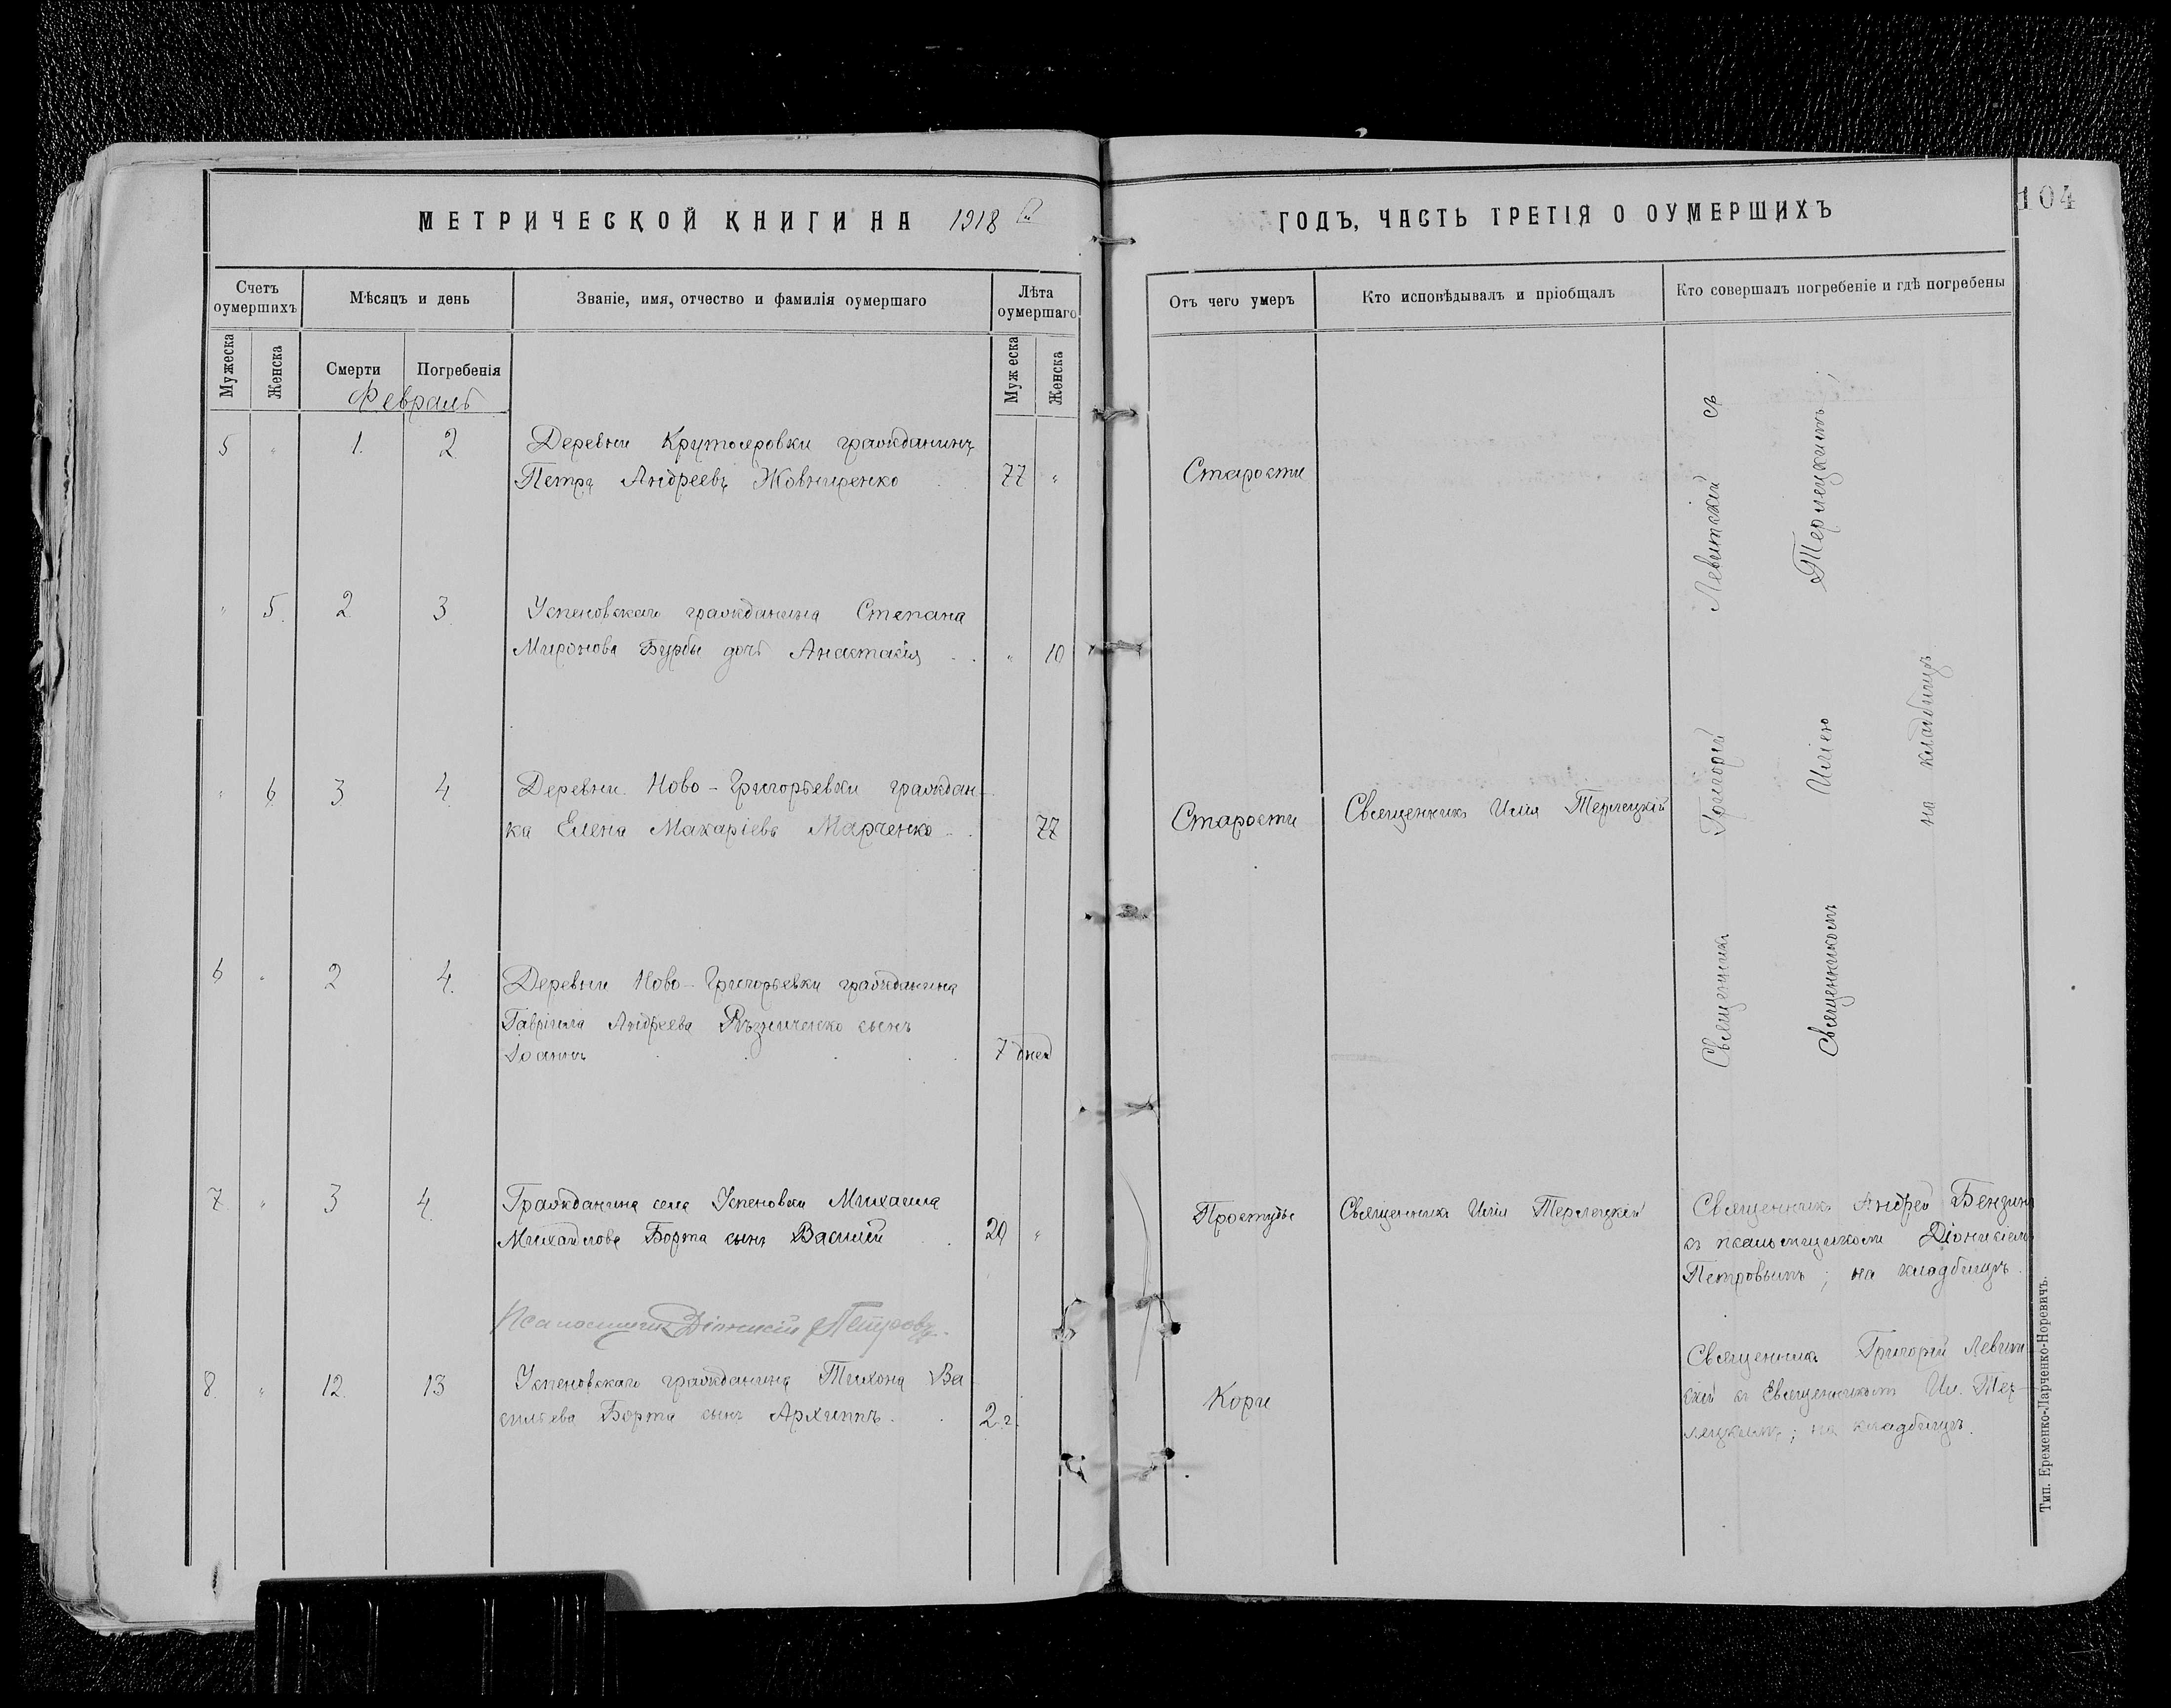 МЕТРИЧЕСКОЙ КНИГИ НА 1918 й
ГОДЪ, ЧАСТЬ ТРЕТІЯ О ОУМЕРШИХЪ
104
Счетъ оумершихъ
Мѣсяцъ и день
Званіе, имя, отчество и фамилія оумершаго
Лѣта оумершаго
Отъ чего умеръ
Кто исповѣдывалъ и пріобщалъ
Кто совершалъ погребеніе и гдѣ погребены
Мужеска
Женска
Смерти
Погребенія
Мужеска
Женска
Февраль
5 " 1. 2 Деревни Крутояровки гражданинъ
Петръ Андреевъ Жовниренко 77 " Старости
" 5. 2 3 Успеновскаго гражданина Степана
Миронова Бурбы дочь Анастасія " 10
" 6 3 4 Деревни Ново-Григорьевки граждан-
ка Елена Макаріева Марченко 77 Старости Священникъ Илія Терлецкій
6 " 2 4. Деревни Ново-Григорьевки гражданина
Гавріила Андреева Рѣзниченко сынъ
Іоаннъ 7 дней
Священникъ Григорій Левитскій съ
Священникомъ Иліею Терлецкимъ;
на кладбищѣ
7 " 3 4. Гражданина села Успеновки Михаила
Михайлова Борта сынъ Василій 20 " Простуды Священникъ Илія Терлецкій
Священникъ Андрей Бензинъ
съ псаломщикомъ Діонисіемъ
Петровымъ; на кладбищѣ.
Псаломщикъ Діонисій Петровъ.
8. " 12. 13 Успеновскаго гражданина Тихона Ва
сильева Борта сынъ Архиппъ. 2 г. Кори
Священникъ Григорій Левит-
скій съ Священникомъ Ил. Тер-
лецкимъ; на кладбищѣ.
Тип. Еременко-Ларченко-Норевичъ.